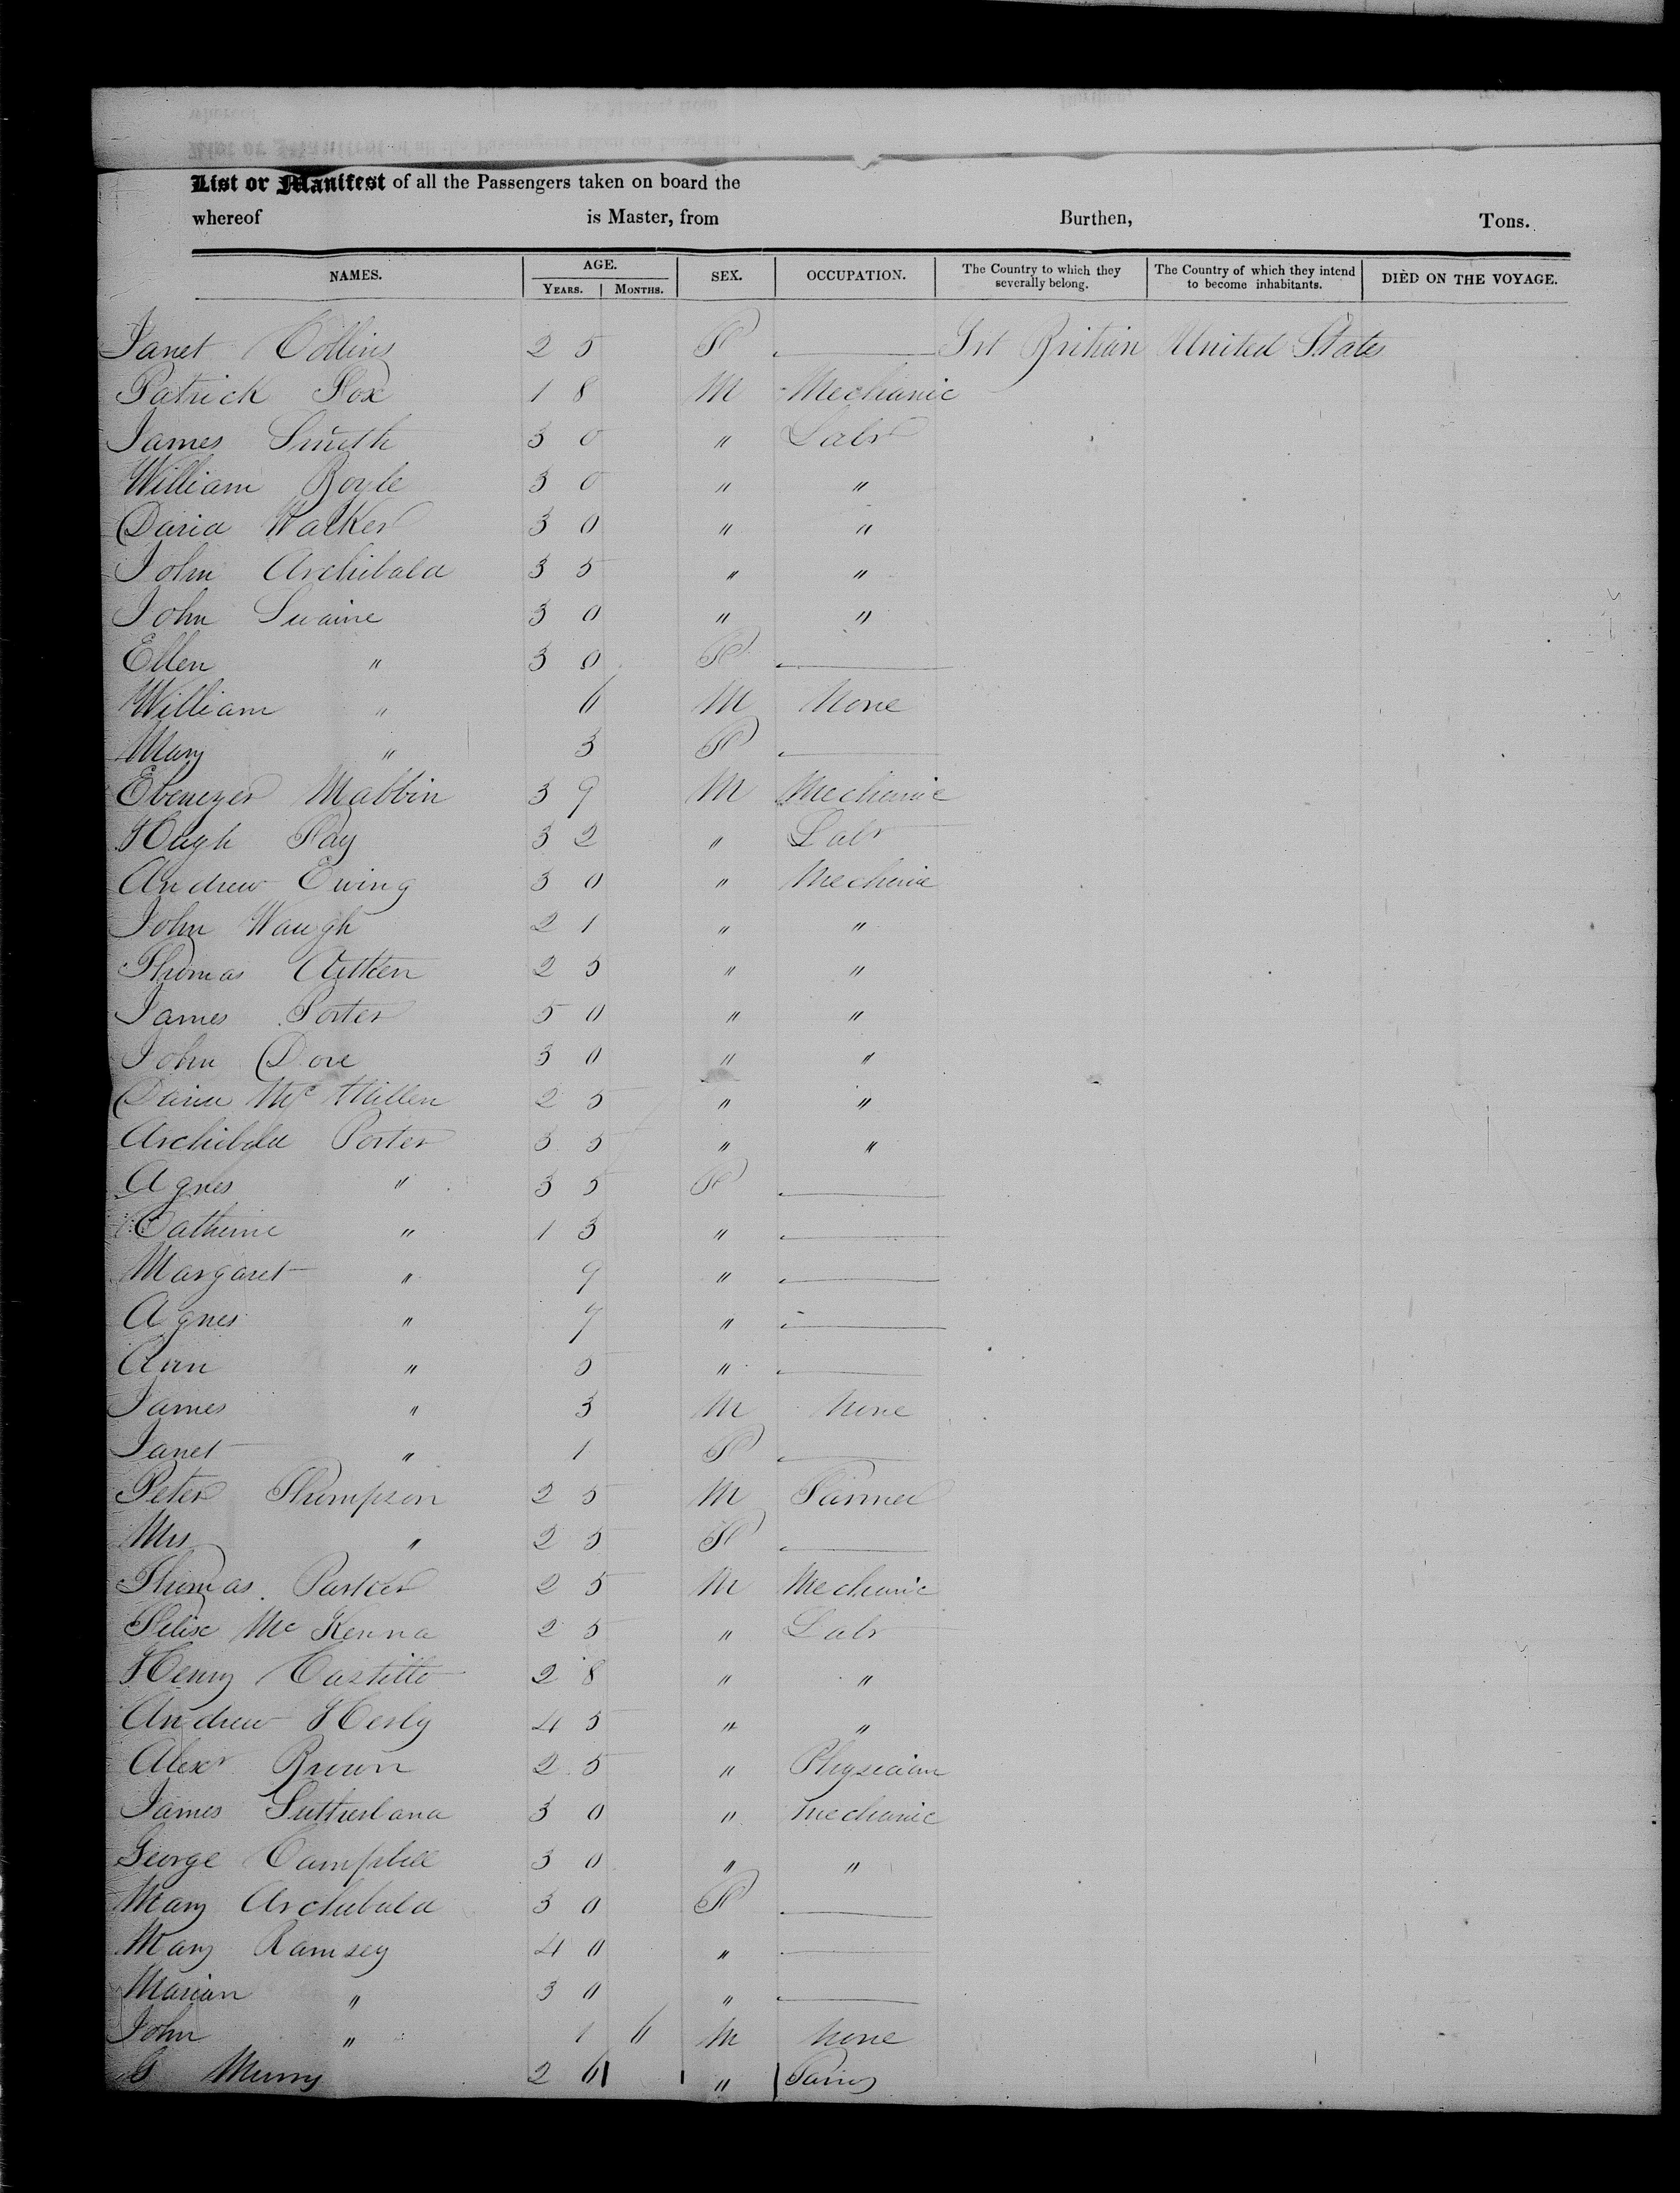 List or Manifest of all the Passengers taken on board the
whereof is Master, from Burthen, Tons.
NAMES. AGE. SEX. OCCUPATION. The Country to which they severally belong. The Country of which they intend to become inhabitants. DIED ON THE VOYAGE.
YEARS. MONTHS.
Janet Collins 25 F — Grt Britian United States
Patrick Fox 18 M Mechanic
James Smith 30 " Labr
William Boyle 30 " "
David Walker 30 " "
John Archibald 35 " "
John Swaine 30 " "
Ellen " 30 F —
William " 6 M None
Mary " 3 F —
Ebenezer Mabbin 39 M Mechanic
Hugh Fay 32 " Labr
Andrew Ewing 30 " Mechanic
John Waugh 21 " "
Thomas Aitken 25 " "
James Porter 50 " "
John Dove 30 " "
David McMillen 25 " "
Archibald Porter 35 " "
Agnes " 35 F —
Catherine " 13 " —
Margaret " 9 " —
Agnes " 7 " —
Ann " 5 " —
James " 3 M None
Janet " 1 F —
Peter Thompson 25 M Farmer
Mrs " 25 F —
Thomas Parker 25 M Mechanic
Felix McKenna 25 " Labr
Henry Castillo 28 " "
Andrew Hesly 45 " "
Alexr Brown 25 " Physician
James Sutherland 30 " Mechanic
George Campbell 30 " "
Mary Archibald 30 F —
Mary Ramsey 40 " —
Marian " 30 " —
John " 1 6 M None
G Murry 26 "